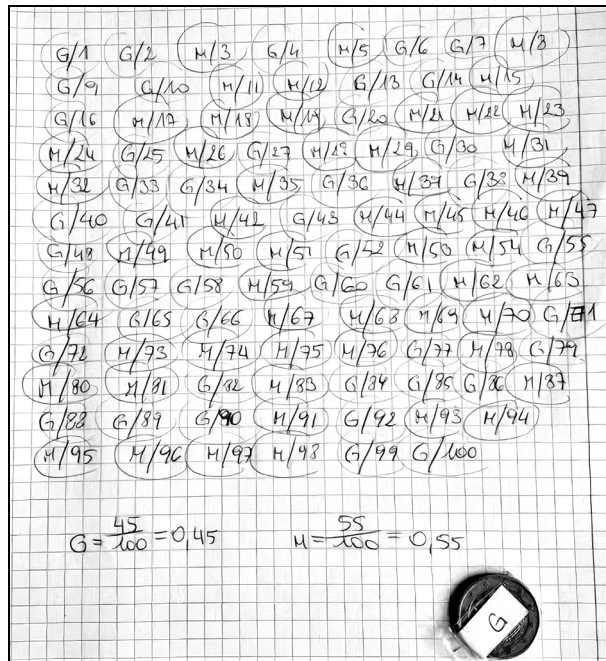 G/1 G/2 M/3 G/4 M/5 G/6 G/7 M/8
G/9 G/10 M/11 M/12 G/13 G/14 M/15
G/16 M/17 M/18 M/19 G/20 M/21 M/22 M/23
M/24 G/25 M/26 G/27 M/28 M/29 G/30 M/31
M/32 G/33 G/34 M/35 G/36 M/37 G/38 M/39
G/40 G/41 M/42 G/43 M/44 M/45 M/46 M/47
G/48 M/49 M/50 M/51 G/52 M/53 M/54 G/55
G/56 G/57 G/58 M/59 G/60 G/61 M/62 M/63
M/64 G/65 G/66 M/67 M/68 M/69 M/70 G/71
G/72 M/73 M/74 M/75 M/76 G/77 M/78 G/79
M/80 M/81 G/82 M/83 G/84 G/85 G/86 M/87
G/88 G/89 G/90 M/91 G/92 M/93 M/94
M/95 M/96 M/97 M/98 G/99 G/100
G = 45/100 = 0,45 M = 55/100 = 0,55
G